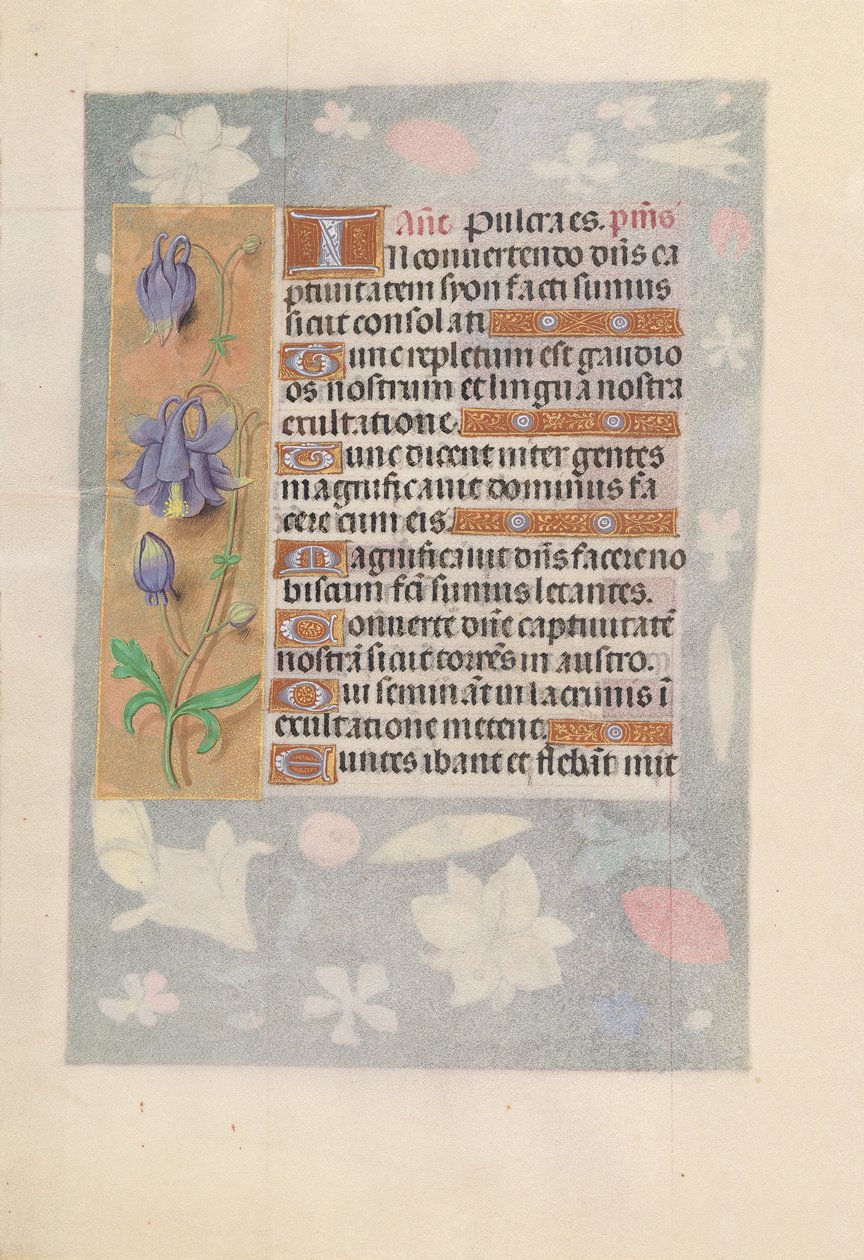 Añt Pulcra es. psm̃s
In conuertendo dñs ca
ptiuitatem syon facti sumus
sicut consolati
Tunc repletum est gaudio
os nostrum et lingua nostra
exultatione.
Tunc dicent inter gentes
magnificauit dominus fa
cere cum eis.
Magnificauit dñs facere no
biscum fc̃i sumus letantes.
Conuerte dñe captiuitatẽ
nostrã sicut torrẽs in austro.
Qui seminãt in lacrimis ĩ
exultatione metent.
Euntes ibant et flebãt mit